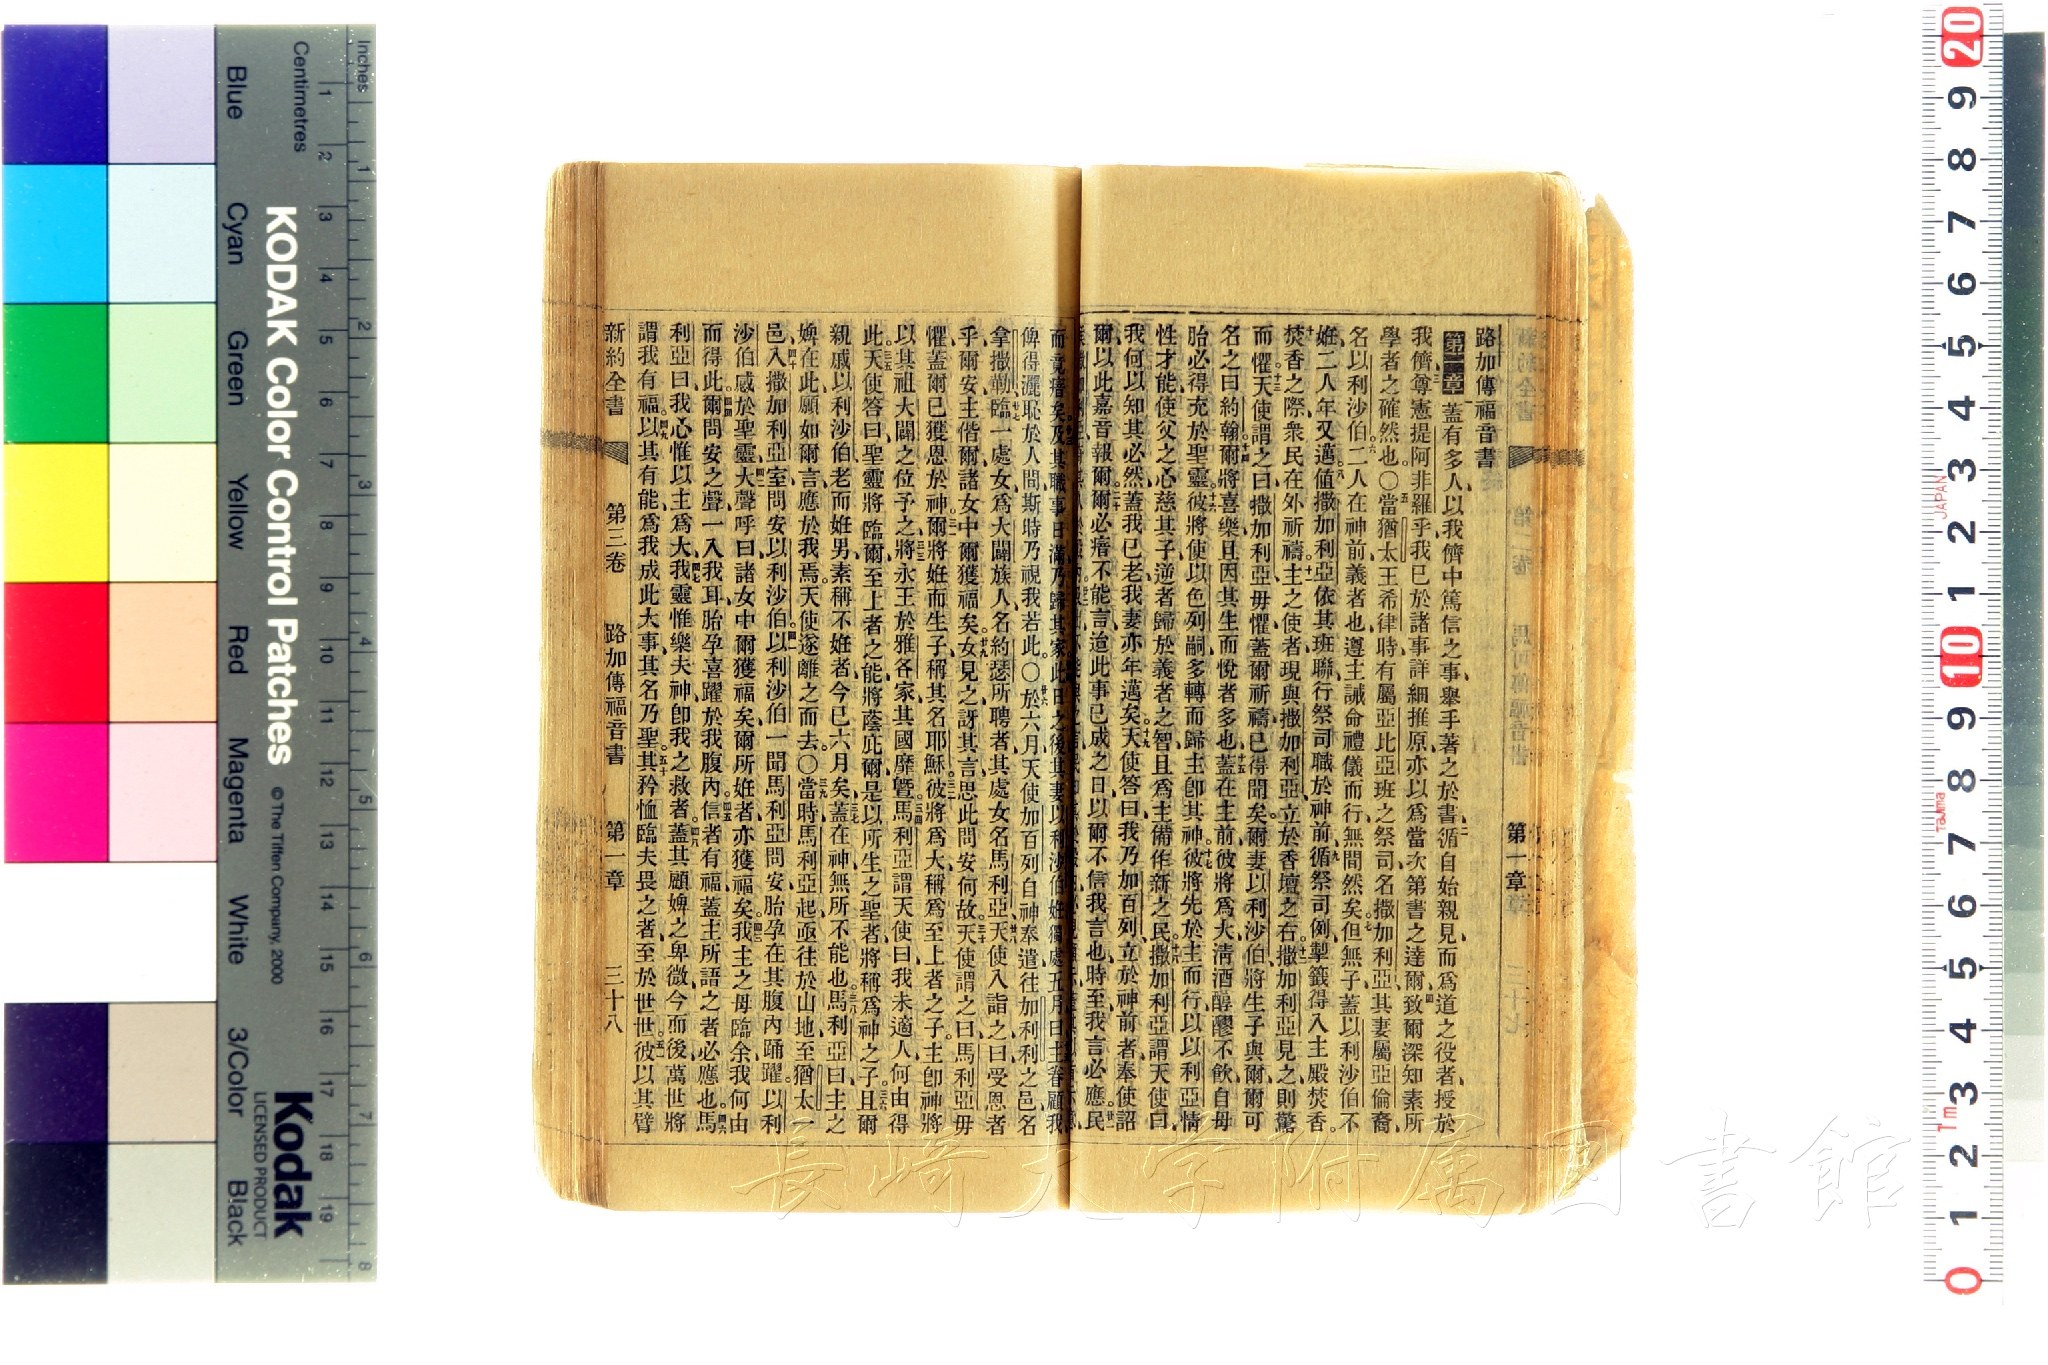 路加傳福音書
第一章 蓋有多人以我儕中篤信之事舉手著之於書循自始親見而爲道之役者授於
我儕尊憲提阿非羅乎我已於諸事詳細推原亦以爲當次第書之達爾致爾深知素所
學者之確然也〇當猶太王希律時有屬亞比亞班之祭司名撒加利亞其妻屬亞倫裔
名以利沙伯二人在神前義者也遵主誡命禮儀而行無間然矣但無子蓋以利沙伯不
姙二人年又邁値撒加利亞依其班聯行祭司職於神前循祭司例掣籤得入主殿焚香
焚香之際衆民在外祈禱主之使者現與撒加利亞立於香壇之右撒加利亞見之則驚
而懼天使謂之曰撒加利亞毋懼蓋爾祈禱已得聞矣爾妻以利沙伯將生子與爾爾可
名之曰約翰爾將喜樂且因其生而悅者多也蓋在主前彼將爲大淸酒醇醪不飲自母
胎必得充於聖靈彼將使以色列嗣多轉而歸主卽其神彼將先於主而行以以利亞情
性才能使父之心慈其子逆者歸於義者之智且爲主備作新之民撒加利亞謂天使曰
我何以知其必然蓋我已老我妻亦年邁矣天使答曰我乃加百列立於神前者奉使詔
爾以此嘉音報爾爾必瘖不能言迨此事已成之日以爾不信我言也時至我言必應民
而竟瘖矣及其職事日滿乃歸其家此日之後其妻以利沙伯姙獨處五月曰主眷顧我
俾得灑恥於人間斯時乃視我若此〇於六月天使加百列自神奉遣往加利利之邑名
拿撒勒臨一處女爲大闢族人名約瑟所聘者其處女名馬利亞天使入詣之曰受恩者
乎爾安主偕爾諸女中爾獲福矣女見之訝其言思此問安何故天使謂之曰馬利亞毋
懼蓋爾已獲恩於神爾將姙而生子稱其名耶穌彼將爲大稱爲至上者之子主卽神將
以其祖大闢之位予之將永王於雅各家其國靡曁馬利亞謂天使曰我未適人何由得
此天使答曰聖靈將臨爾至上者之能將蔭庇爾是以所生之聖者將稱爲神之子且爾
親戚以利沙伯老而姙男素稱不姙者今已六月矣蓋在神無所不能也馬利亞曰主之
婢在此願如爾言應於我焉天使遂離之而去〇當時馬利亞起亟往於山地至猶太一
邑入撒加利亞室問安以利沙伯以利沙伯一聞馬利亞問安胎孕在其腹內踊躍以利
沙伯感於聖靈大聲呼曰諸女中爾獲福矣爾所姙者亦獲福矣我主之母臨余我何由
而得此爾問安之聲一入我耳胎孕喜躍於我腹內信者有福蓋主所語之者必應也馬
利亞曰我心惟以主爲大我靈惟樂夫神卽我之救者蓋其顧婢之卑微今而後萬世將
謂我有福以其有能爲我成此大事其名乃聖其矜恤臨夫畏之者至於世世彼以其臂
新約全書 第三卷 路加傳福音書 第一章 三十八
KODAK Color Control Patches
© The Tiffen Company, 2000
Kodak
LICENSED PRODUCT
Inches
Centimetres
Blue
Cyan
Green
Yellow
Red
Magenta
White
3/Color
Black
JAPAN
Tajima
長崎大学附属図書館